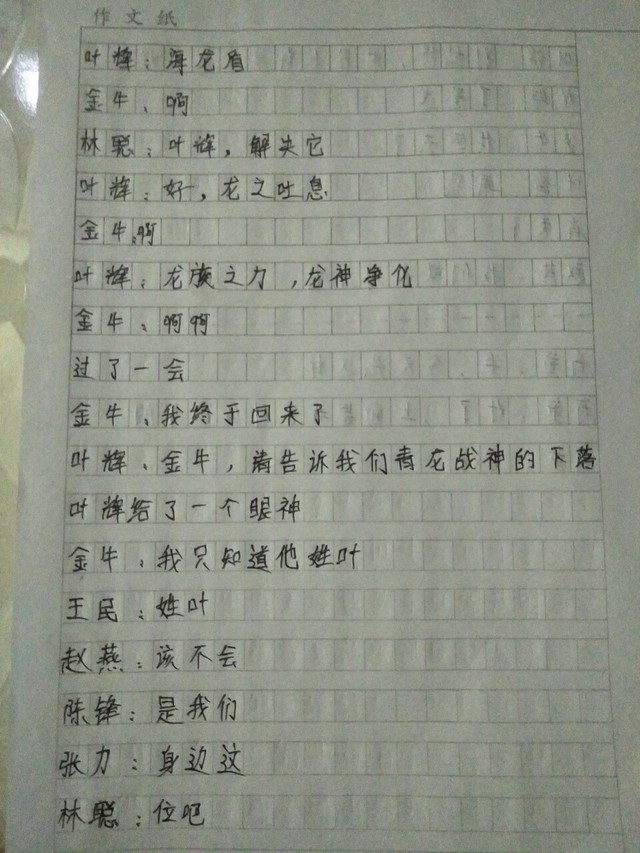 作文纸
叶辉：海龙盾
金牛、啊
林聪：叶辉，解决它
叶辉：好，龙之吐息
金牛：啊
叶辉：龙族之力，龙神净化
金牛：啊啊
过了一会
金牛、我终于回来了
叶辉、金牛，请告诉我们青龙战神的下落
叶辉给了一个眼神
金牛、我只知道他姓叶
王民：姓叶
赵燕：该不会
陈锋：是我们
张力：身边这
林聪：位吧